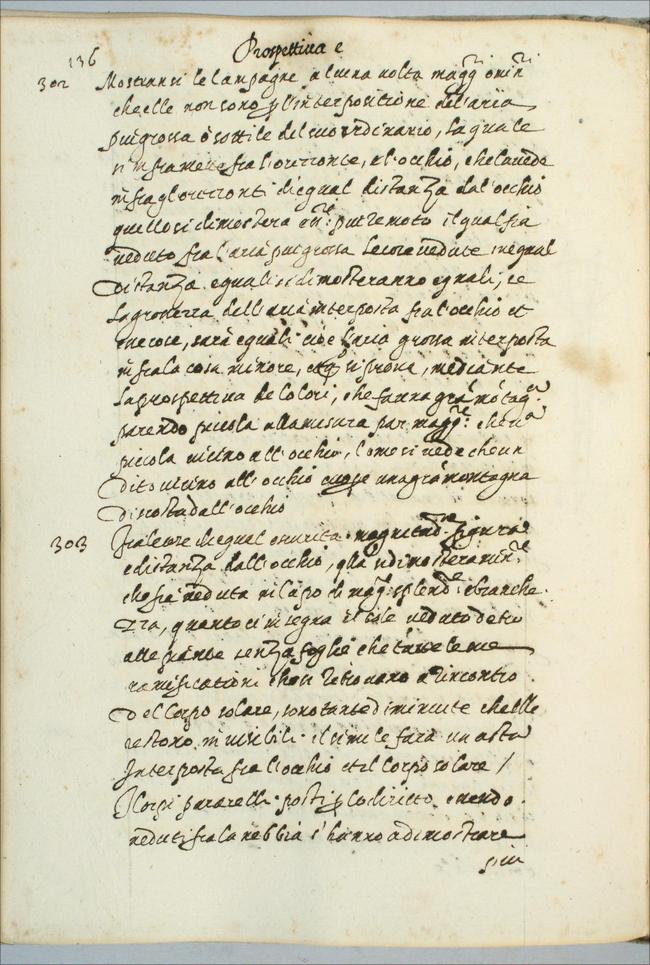 Prospettiva e
136
302 Mostransi le campagne alcuna volta magg.ri o min.ri
che elle non sono p l'interpositione dell'aria
più grossa o sottile del suo ordinario, la quale
s'inframette fra l'orizonte, e l'occhio, che la vede
infra gl'orizonti d'egual distanza dal'occhio
quello si dimostera più remoto il qual fia
veduto fra l'aria più grossa Le cose vedute in equal
Distanza eguali si dimosteranno eguali, se
la grossezza dell'aria interposta fra l'occhio et
cose, sarà eguali cioè l'aria grossa interposta
infra la cosa minore, si prova, mediante
la prospettiva de colori, che fanno grā mōtag.a
parendo picola alla misura par magg.re che una
picola vicino all'occhio, come si vede che un
Dito vicino all'occhio cuopre una grā montagna
Discosta dall'occhio
303 Fra le cose di equal oscurita magnitud.ne figura
e distanza dall'occhio, q̄lla si dimostera min.re
che fia veduta in cāpo di magg. splend.re e bianche
zza, questo ci insegna il sole veduto dietro
alle piante senza foglie che tutte le sue
ramificationi che si retrovano a rincontro
Del corpo solare, sono tanto diminuite che elle
restono invisibili il simile farà un asta
Interposta fra l'occhio et il corpo solare /
I corpi pararelli posti p lo diritto essendo
veduti fra la nebbia s'hanno a dimostrare
più